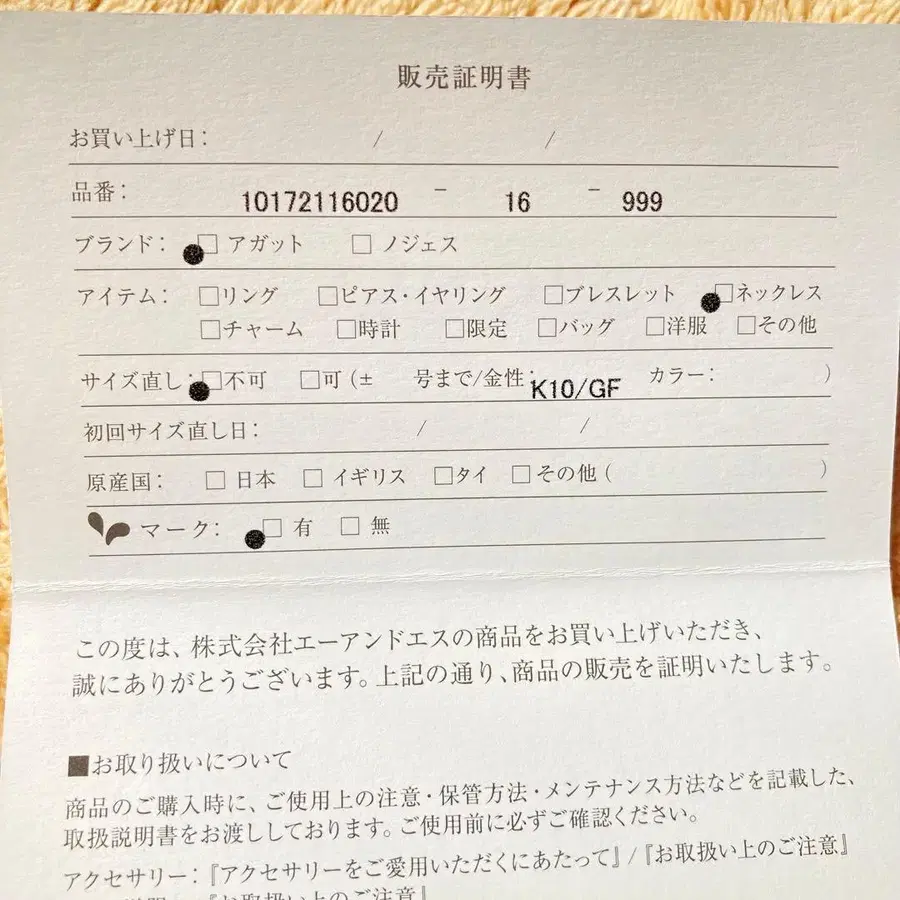 販売証明書
お買い上げ日: / /
品番: 10172116020 - 16 - 999
ブランド: ●□ アガット □ ノジェス
アイテム: □リング □ピアス・イヤリング □ブレスレット ●□ネックレス
□チャーム □時計 □限定 □バッグ □洋服 □その他
サイズ直し:●□不可 □可(± 号まで/金性:K10/GF カラー: )
初回サイズ直し日: / /
原産国: □ 日本 □ イギリス □タイ □その他( )
マーク: ●□ 有 □ 無
この度は、株式会社エーアンドエスの商品をお買い上げいただき、
誠にありがとうございます。上記の通り、商品の販売を証明いたします。
■お取り扱いについて
商品のご購入時に、ご使用上の注意・保管方法・メンテナンス方法などを記載した、
取扱説明書をお渡ししております。ご使用前に必ずご確認ください。
アクセサリー:『アクセサリーをご愛用いただくにあたって』/『お取扱い上のご注意』
『お取扱い上のご注意』